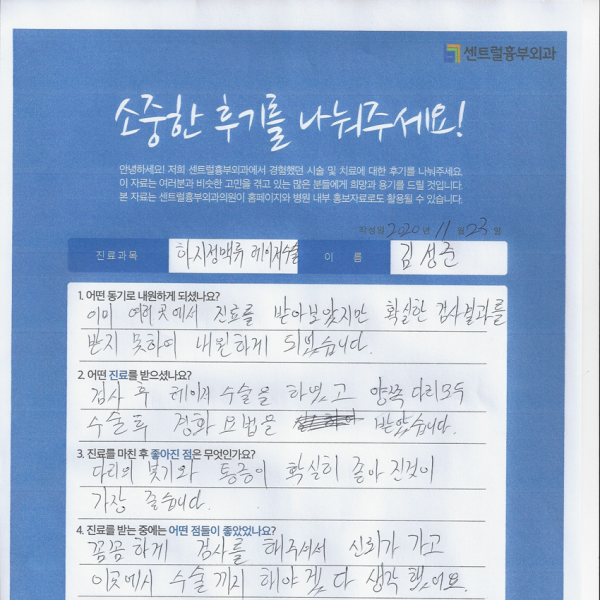 센트럴흉부외과
소중한 후기를 나눠주세요!
안녕하세요! 저희 센트럴흉부외과에서 경험했던 시술 및 치료에 대한 후기를 나눠주세요.
이 자료는 여러분과 비슷한 고민을 겪고 있는 많은 분들에게 희망과 용기를 드릴 것입니다.
본 자료는 센트럴흉부외과의원이 홈페이지와 병원 내부 홍보자료로도 활용될 수 있습니다.
작성일 2020년 11월 23일
진료과목 하지정맥류 레이저수술 이 름 김성준
1. 어떤 동기로 내원하게 되셨나요?
이미 여러곳에서 진료를 받아보았지만 확실한 검사결과를
받지 못하여 내원하게 되었습니다.
2. 어떤 진료를 받으셨나요?
검사 후 레이저 수술을 하였고 양쪽 다리모두
수술후 경화요법을 받았습니다.
3. 진료를 마친 후 좋아진 점은 무엇인가요?
다리의 붓기와 통증이 확실히 좋아진것이
가장 좋습니다.
4. 진료를 받는 중에는 어떤 점들이 좋았었나요?
꼼꼼하게 검사를 해주셔서 신뢰가 가고
이곳에서 수술까지 해야겠다 생각했어요.